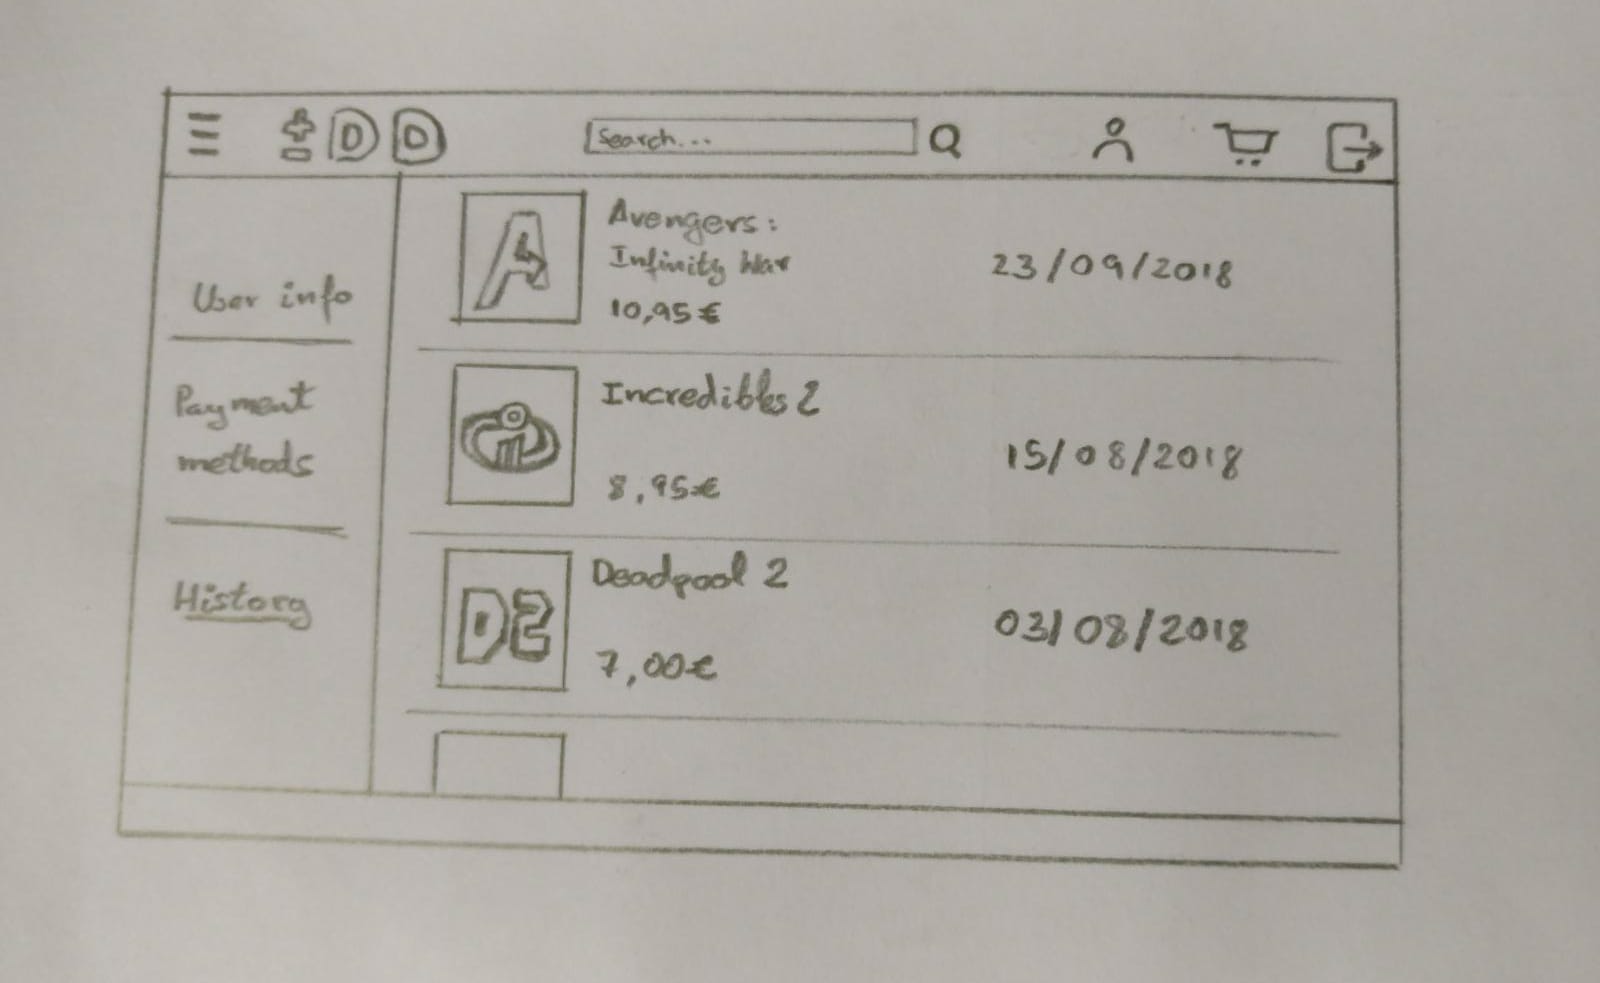 DD
Search...
User info
Payment
methods
History
A
Avengers:
Infinity War
10,95€
23/09/2018
Incredibles 2
8,95€
15/08/2018
D2
Deadpool 2
7,00€
03/08/2018